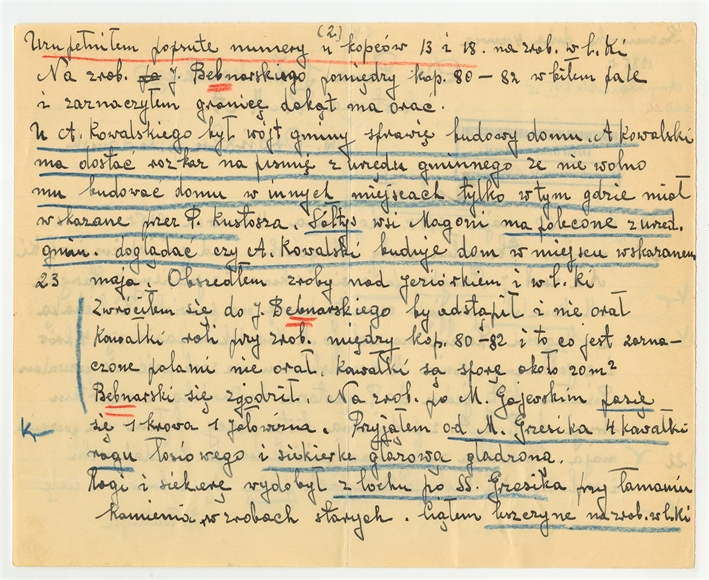 (2.)
Uzupełniłem popsute numery u kopców 13 i 18. na zrob. w l. Ki
Na zrob. J. Bębnarskiego pomiędzy kop. 80 – 82 wbiłem pale
i zaznaczyłem granicę dokąt ma orać.
U A. Kowalskiego był wojt gminy sprawię budowy domu. A Kowalski
ma dostać rozkaz na pismię z urzędu gminnego że nie wolno
mu budować domu w innych miejscach tylko w tym gdzie miał
wskazane przez P. Kustosza. Sołtys wsi Magoni ma polecone z urzęd.
gmin. doglądać czy A. Kowalski buduje dom w miejscu wskazanem
23 maja. Obszedłem zroby nad Jeziórkiem i w l. Ki
Zwróciłem się do J. Bębnarskiego by odstąpił i nie orał
Kowałki roli przy zrob. między kop. 80-82 i to co jest zazna-
czone palami nie orał. Kawałki są sporę około 20 m²
Bębnarski się zgodził. Na zrob. po M. Gajewskim pasię
się 1 krowa 1 jałowizna. Przyjąłem od M. Grzesika 4 kawałki
rogu łosiowego i siekierke głazową gładzoną.
Rogi i siekierę wydobył z lochu po SS. Grzesika przy łamaniu
kamienia w zrobach starych. Ciąłem leszczynę na zrob. w l. ki
K